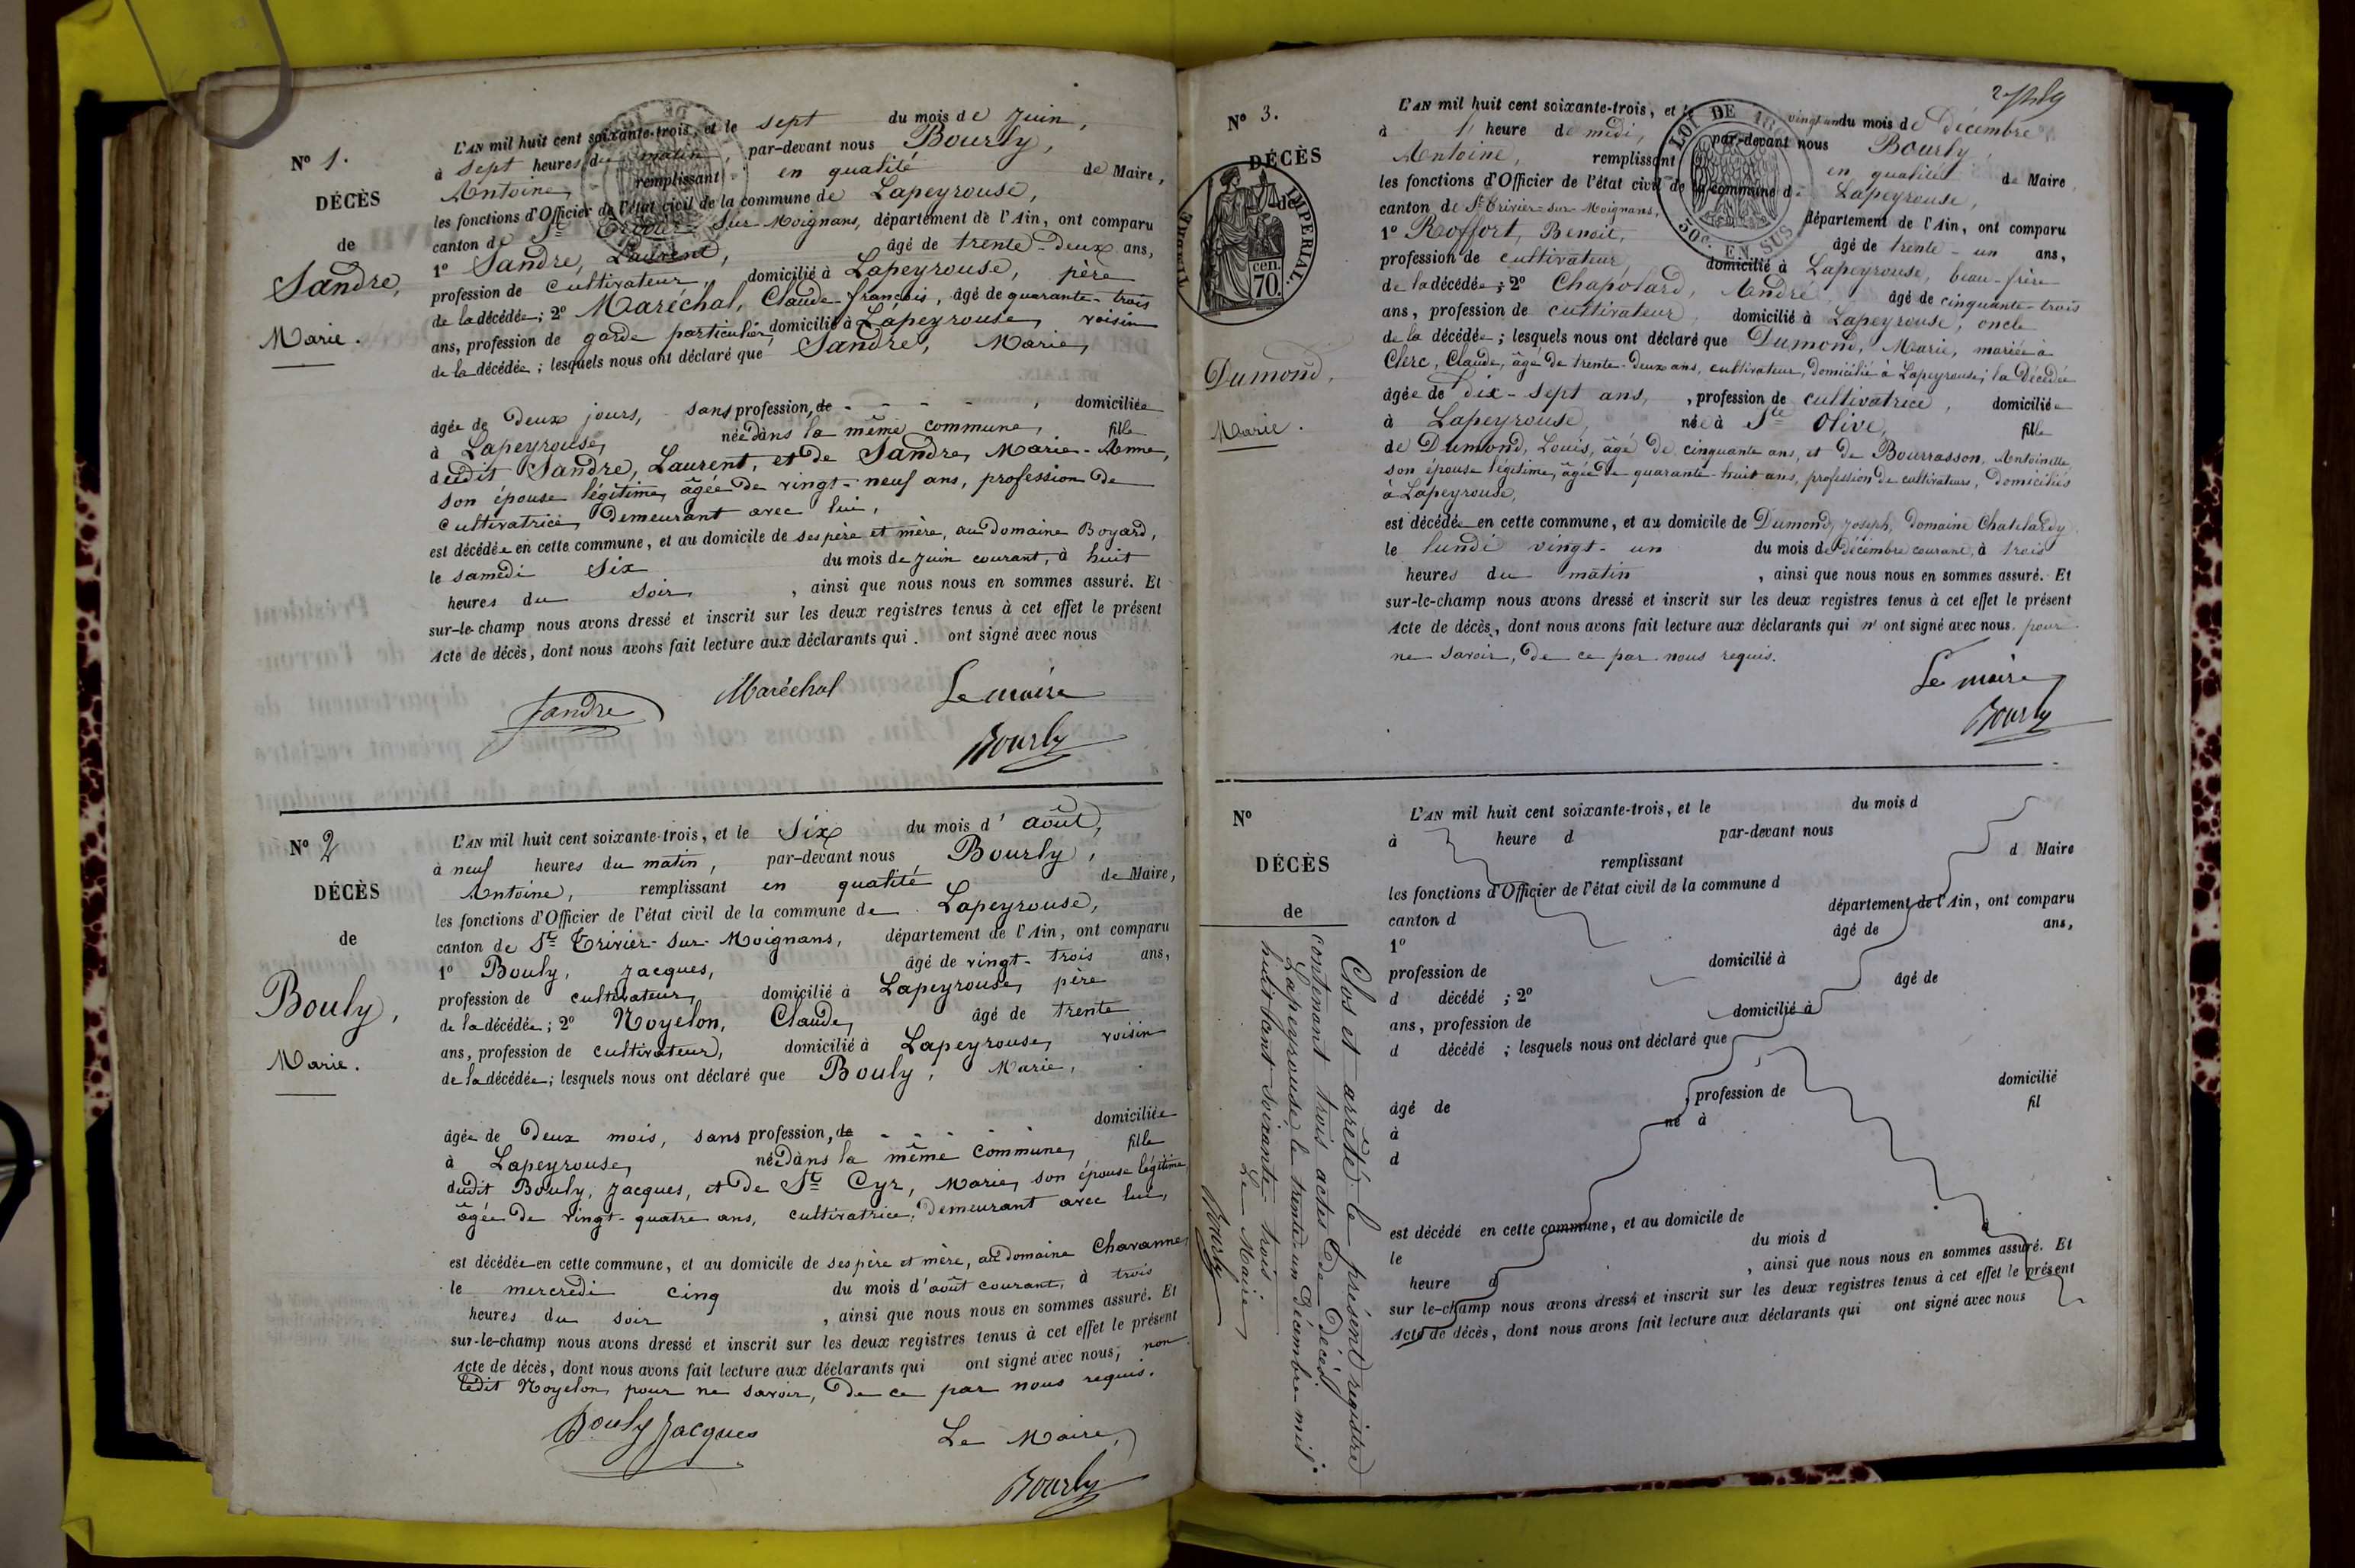 Nº 1.
DÉCÈS
de
Sandre,
Marie.
L'AN mil huit cent soixante-trois, et le sept du mois de Juin,
à sept heures du matin, par-devant nous Bourly,
Antoine, remplissant en qualité de Maire,
les fonctions d'Officier de l'état civil de la commune de Lapeyrouse,
canton de St Trivier-Sur-Moignans, département de l'Ain, ont comparu
1º Sandre, Laurent, âgé de trente-deux ans,
profession de cultivateur, domicilié à Lapeyrouse, père
de la décédée; 2º Maréchal, Claude-françois, âgé de quarante-trois
ans, profession de garde particulier, domicilié à Lapeyrouse, voisin
de la décédée; lesquels nous ont déclaré que Sandre, Marie,
âgée de Deux jours, sans profession, de - - - - , domiciliée
à Lapeyrouse, née dans la même commune, fille
dudit Sandre, Laurent, et de Sandre, Marie-Anne,
son épouse légitime, âgée de vingt-neuf ans, profession de
cultivatrice, demeurant avec lui,
est décédée en cette commune, et au domicile de ses père et mère, au domaine Boyard,
le samedi Six du mois de Juin courant, à huit
heures du soir, , ainsi que nous nous en sommes assuré. Et
sur-le-champ nous avons dressé et inscrit sur les deux registres tenus à cet effet le présent
Acte de décès, dont nous avons fait lecture aux déclarants qui . ont signé avec nous
Sandre Maréchal Le maire
Bourly
Nº 2
DÉCÈS
de
Bouly,
Marie.
L'AN mil huit cent soixante-trois, et le Six du mois d' août,
à neuf heures du matin, par-devant nous Bourly,
Antoine, remplissant en qualité de Maire,
les fonctions d'Officier de l'état civil de la commune de Lapeyrouse,
canton de St Trivier-Sur-Moignans, département de l'Ain, ont comparu
1º Bouly, Jacques, âgé de vingt-trois ans,
profession de cultivateur, domicilié à Lapeyrouse, père
de la décédée; 2º Noyelon, Claude, âgé de trente
ans, profession de cultivateur, domicilié à Lapeyrouse, voisin
de la décédée; lesquels nous ont déclaré que Bouly, Marie,
âgée de Deux mois, sans profession, de - - - - domiciliée
à Lapeyrouse, née dans la même commune, fille
dudit Bouly, Jacques, et de St Cyr, Marie, son épouse légitime,
âgée de vingt-quatre ans, cultivatrice, demeurant avec lui,
est décédée en cette commune, et au domicile de ses père et mère, au domaine Chavanne,
le mercredi cinq du mois d'août courant, à trois
heures du soir , ainsi que nous nous en sommes assuré. Et
sur-le-champ nous avons dressé et inscrit sur les deux registres tenus à cet effet le présent
Acte de décès, dont nous avons fait lecture aux déclarants qui ont signé avec nous, non
ledit Noyelon, pour ne savoir, de ce par nous requis.
Bouly Jacques Le Maire,
Bourly
Nº 3.
DÉCÈS
de
TIMBRE IMPERIAL.
70 cen.
Dumond,
Marie.
LOI DE
50c. EN SUS
L'AN mil huit cent soixante-trois, et le vingt un du mois de décembre
à 1 heure de midi, par-devant nous Bourly,
Antoine, remplissant en qualité de Maire
les fonctions d'Officier de l'état civil de la commune de Lapeyrouse,
canton de St Trivier-sur-Moignans, département de l'Ain, ont comparu
1º Roffort, Benoit, âgé de trente-un ans,
profession de cultivateur, domicilié à Lapeyrouse, beau-frère
de la décédée; 2º Chapolard, André, âgé de cinquante-trois
ans, profession de cultivateur, domicilié à Lapeyrouse, oncle
de la décédée; lesquels nous ont déclaré que Dumond, Marie, mariée à
Clerc, Claude, âgé de trente-deux ans, cultivateur, domicilié à Lapeyrouse; la Décédée
âgée de dix-sept ans, , profession de cultivatrice, domiciliée
à Lapeyrouse, née à Ste Olive, fille
de Dumond, Louis, âgé de cinquante ans, et de Bourrasson, Antoinette,
son épouse légitime, âgée de quarante-huit ans, profession de cultivateurs, domiciliés
à Lapeyrouse,
est décédée en cette commune, et au domicile de Dumond, Joseph, Domaine Chatelardy,
le lundi vingt-un du mois de décembre courant, à trois
heures du matin , ainsi que nous nous en sommes assuré. Et
sur-le-champ nous avons dressé et inscrit sur les deux registres tenus à cet effet le présent
Acte de décès, dont nous avons fait lecture aux déclarants qui n'ont signé avec nous. pour
ne savoir, de ce par nous requis.
Le maire
Bourly
Nº
DÉCÈS
de
Clos et arrêté le présent registre
contenant trois actes de Décès,
Lapeyrouse, le trente-un Décembre mil
huit cent soixante-trois
Le Maire,
Bourly
L'AN mil huit cent soixante-trois, et le du mois d
à heure d par-devant nous
remplissant d Maire
les fonctions d'Officier de l'état civil de la commune d
canton d département de l'Ain, ont comparu
1º âgé de ans,
profession de domicilié à
d décédé ; 2º âgé de
ans, profession de domicilié à
d décédé ; lesquels nous ont déclaré que
âgé de , profession de domicilié
à né à fil
d
est décédé en cette commune, et au domicile de
le du mois d
heure d , ainsi que nous nous en sommes assuré. Et
sur le-champ nous avons dressé et inscrit sur les deux registres tenus à cet effet le présent
Acte de décès, dont nous avons fait lecture aux déclarants qui ont signé avec nous